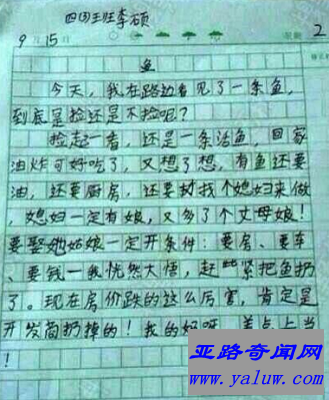 四(1)班李硕
9月15日 星期 2
鱼
今天,我在路边看见了一条鱼,
到底是捡还是不捡呢?
捡起一看,还是一条活鱼,回家
油炸可好吃了,又想了想,有鱼还要
油,还要厨房,还要找个媳妇来做
,媳妇一定有娘,又多了个丈母娘!
要娶她姑娘一定开条件:要房、要车
、要钱—我恍然大悟,赶紧把鱼扔
了。现在房价跌的这么厉害,肯定是
开发商扔掉的!我的妈呀,差点上当
!
亚路奇闻网
www.yaluw.com